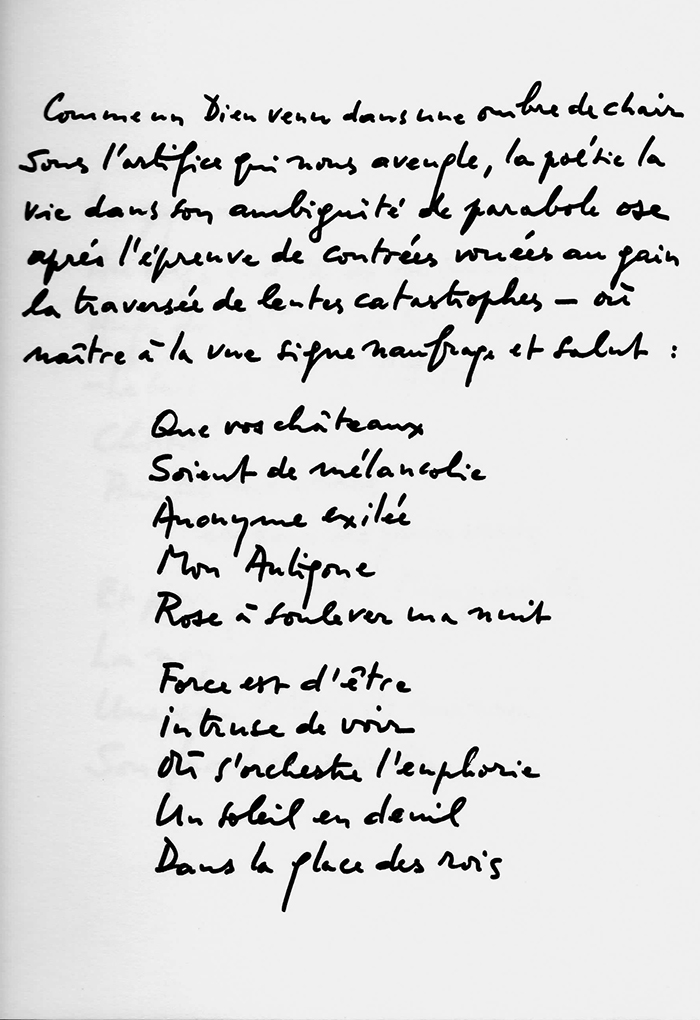 Comme un Dieu venu dans une ombre de chair
Sous l'artifice qui nous aveugle, la poésie la
vie dans son ambiguité de parabole ose
après l'épreuve de contrées vouées au gain
la traversée de lentes catastrophes — où
naître à la vue signe naufrage et salut :
Que vos châteaux
Soient de mélancolie
Anonyme exilée
Mon Antigone
Rose à soulever ma nuit
Force est d'être
intruse de voir
Où s'orchestre l'euphorie
Un soleil en deuil
Dans la glace des rois